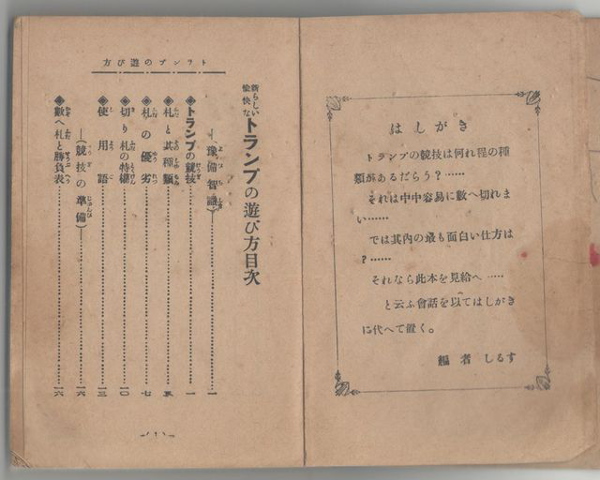 はしがき
トランプの競技は何れ程の種
類があるだらう？……
それは中中容易に數へ切れま
い……
では其內の最も面白い仕方は
？……
それなら此本を見給へ……
と云ふ會話を以てはしがき
に代へて置く。
編者しるす
トランプの遊び方
新らしい愉快なトランプの遊び方目次
―(豫備智識)―……一
◈トランプの競技……一
◈札と其種類……五
◈札の優劣……七
◈切り札の特權……一〇
◈使用語……一三
―(競技の準備)―……一六
◈數へ札と勝負表……一六
―(1)―